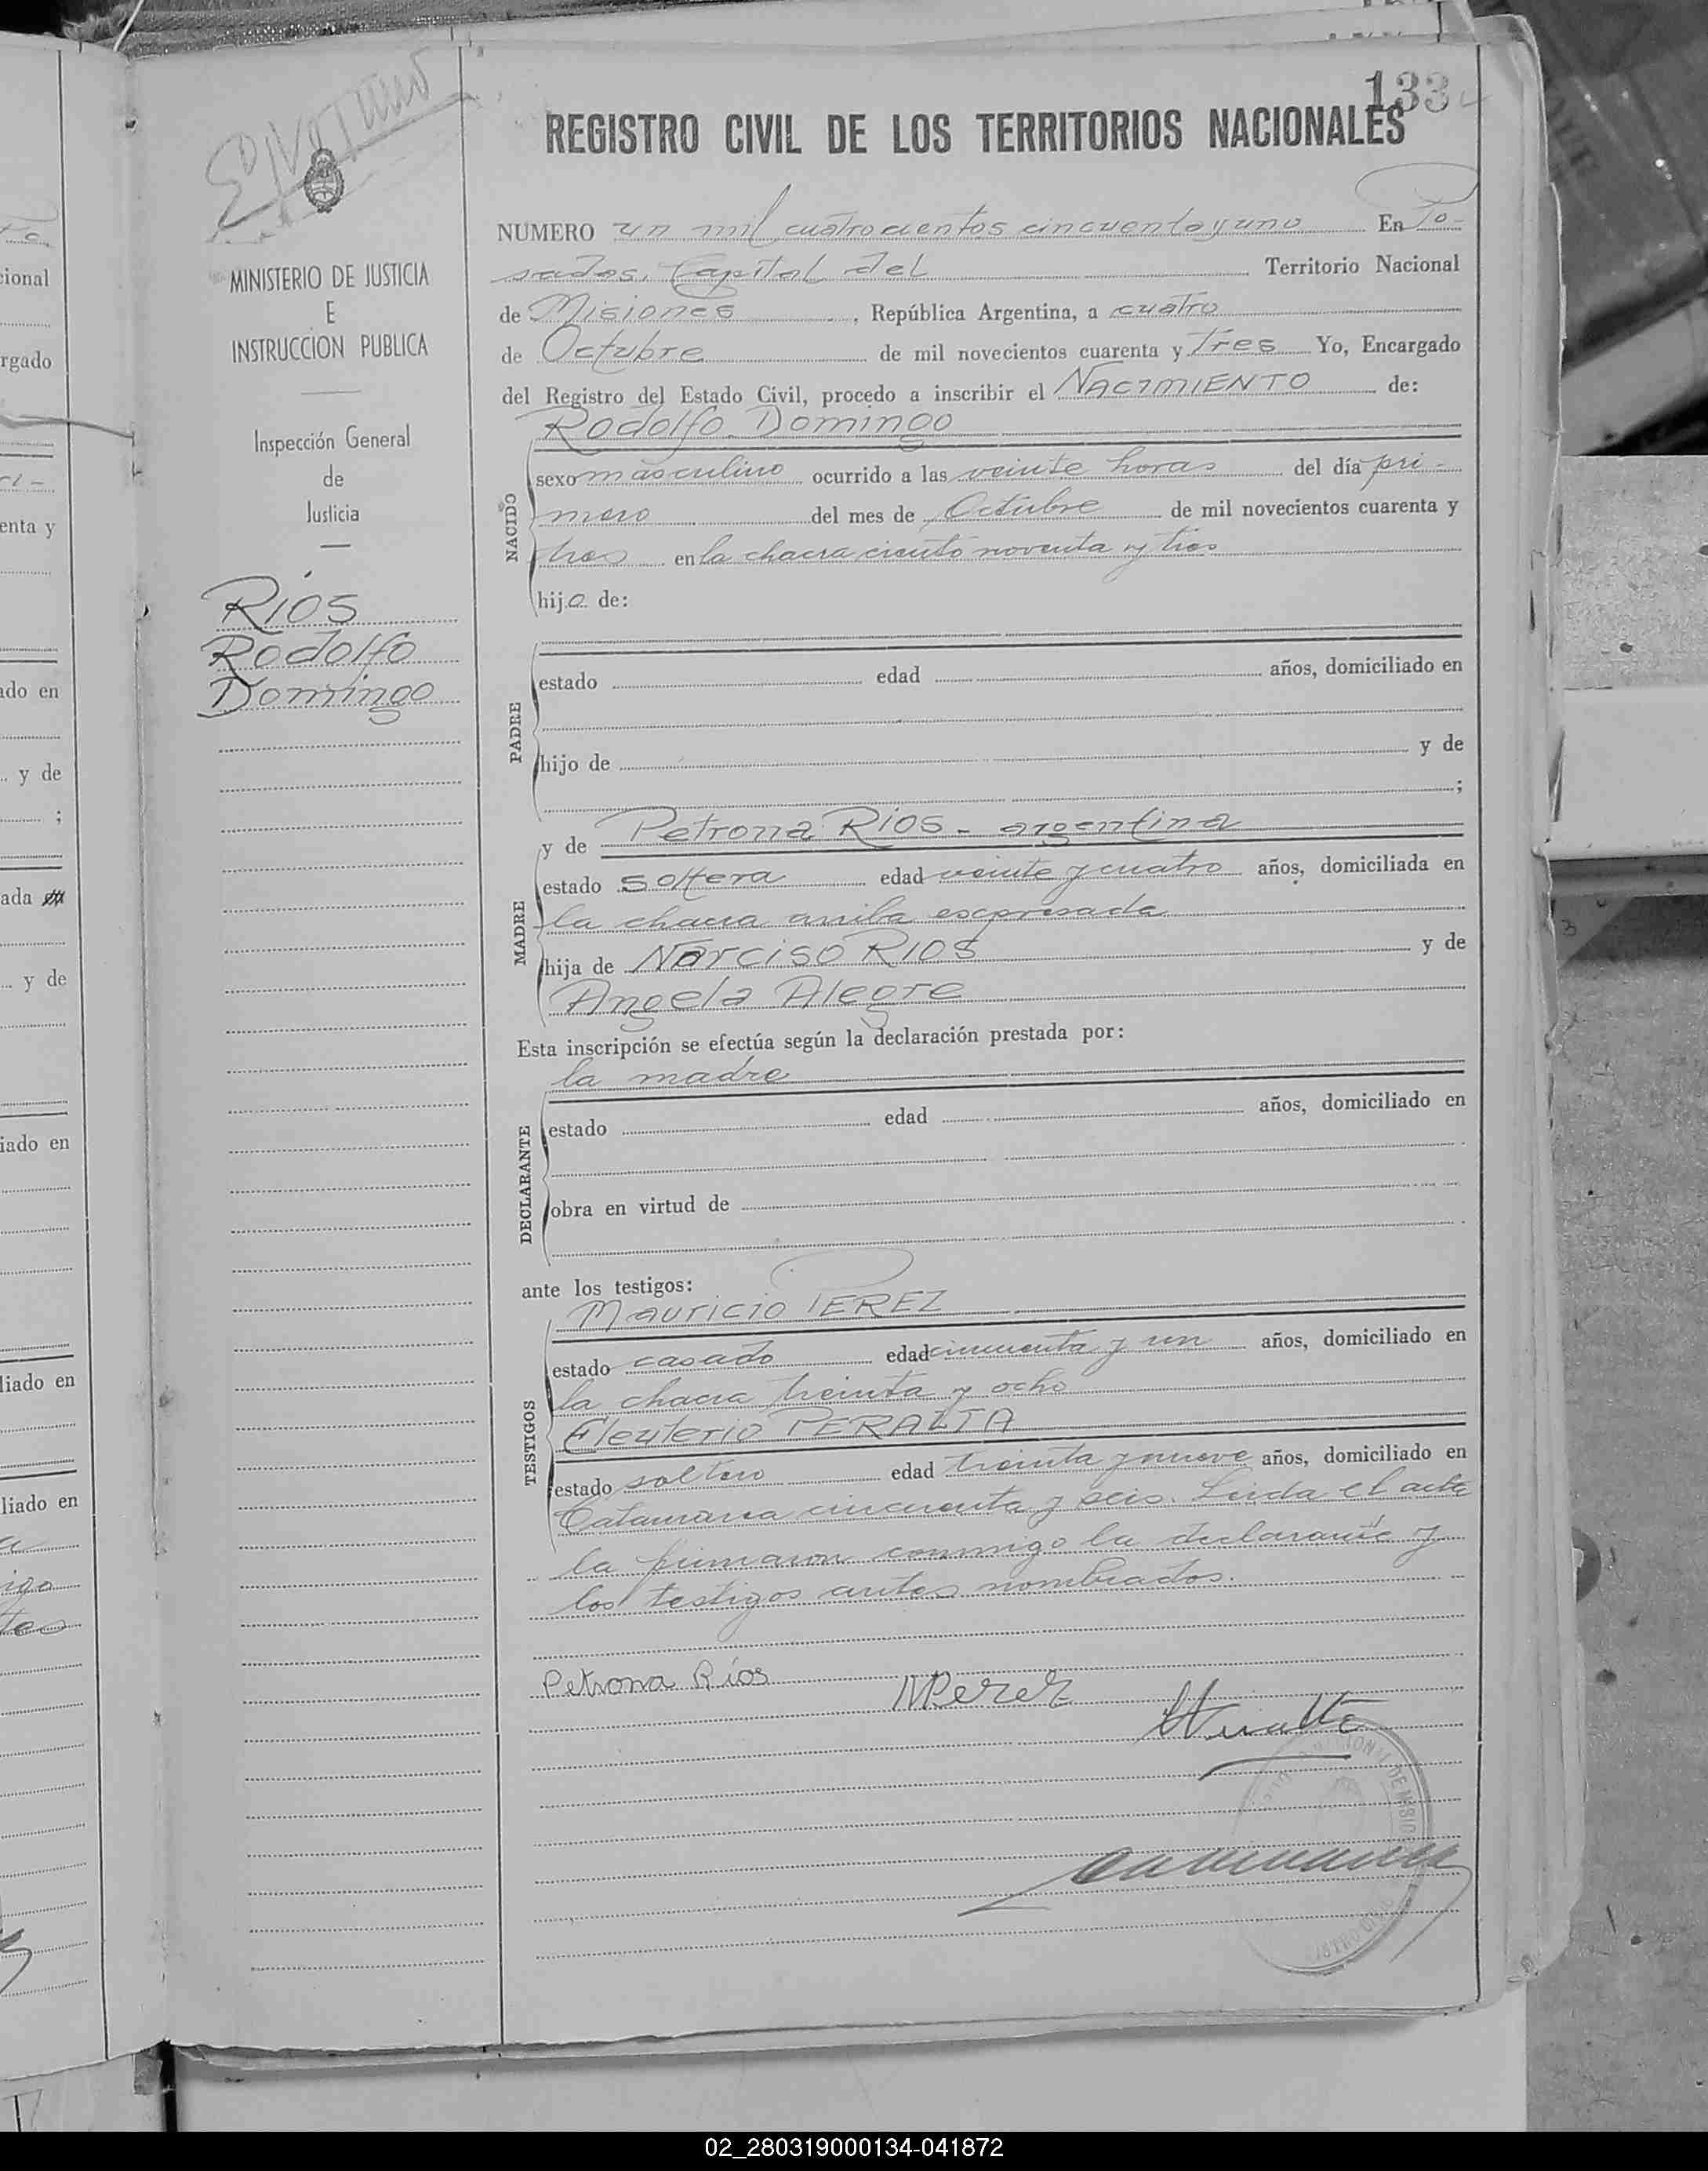 133
REGISTRO CIVIL DE LOS TERRITORIOS NACIONALES
MINISTERIO DE JUSTICIA
E
INSTRUCCIÓN PUBLICA
Inspección General
de
Justicia
RIOS
Rodolfo
Domingo
NUMERO un mil cuatrocientos cincuenta y uno En Po-
sadas, Capital del Territorio Nacional
de Misiones, República Argentina, a cuatro
de Octubre de mil novecientos cuarenta y Tres Yo, Encargado
del Registro del Estado Civil, procedo a inscribir el NACIMIENTO de:
Rodolfo Domingo
NACIDO
sexo masculino ocurrido a las veinte horas del día pri-
mero del mes de Octubre de mil novecientos cuarenta y
tres en la chacra ciento noventa y tres
hijo de:
PADRE
estado edad años, domiciliado en
hijo de y de
;
y de Petrona RIOS - argentina
MADRE
estado soltera edad veinte y cuatro años, domiciliada en
la chacra arriba escpresada
hija de Narciso RIOS y de
Angela Alegre
Esta inscripción se efectúa según la declaración prestada por:
la madre
DECLARANTE
estado edad años, domiciliado en
obra en virtud de
ante los testigos:
Mauricio PEREZ
TESTIGOS
estado casado edad cincuenta y un años, domiciliado en
la chacra treinta y ocho
Eleuterio PERALTA
estado soltero edad treinta y nueve años, domiciliado en
Catamarca cincuenta y seis. Leida el acta
la firmaron conmigo la declarante y
los testigos antes nombrados.
Petrona Ríos MPerez
cional
rgado
enta y
ado en
y de
;
ada
y de
iado en
liado en
liado en
02_280319000134-041872